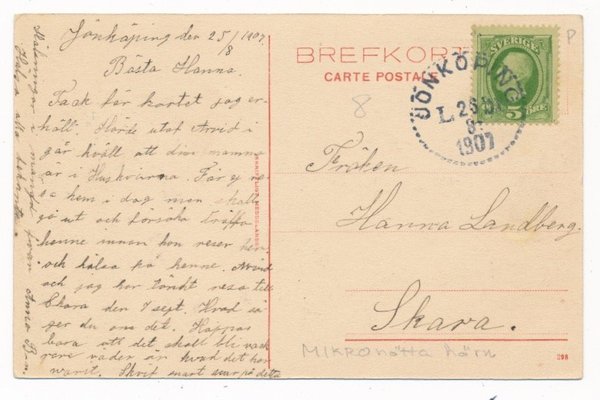 Jönköping den 25/8 1907.
Bästa Hanna.
Tack för kortet jag er-
hållt. Hörde utaf Arvid i
går kväll att din mamma
är i Huskvarna. Får ej re-
sa hem i dag men skall
gå ut och försöka träffa
henne innan hon reser hem
och hälsa på henne. Arvid
och jag har tänkt resa till
Skara den 7 sept. Hvad sä-
ger du om det. Hoppas
bara att det skall bli vack-
rare väder än hvad det har
varit. Skrif snart svar på detta
Hälsningar många från Anna
Hälsa alla bekanta
BREFKORT
CARTE POSTALE
SVERIGE
5 ÖRE
JÖNKÖPING
L.
1907
8
P
Fröken
Hanna Landberg.
Skara.
MIKRONötta hörn
298